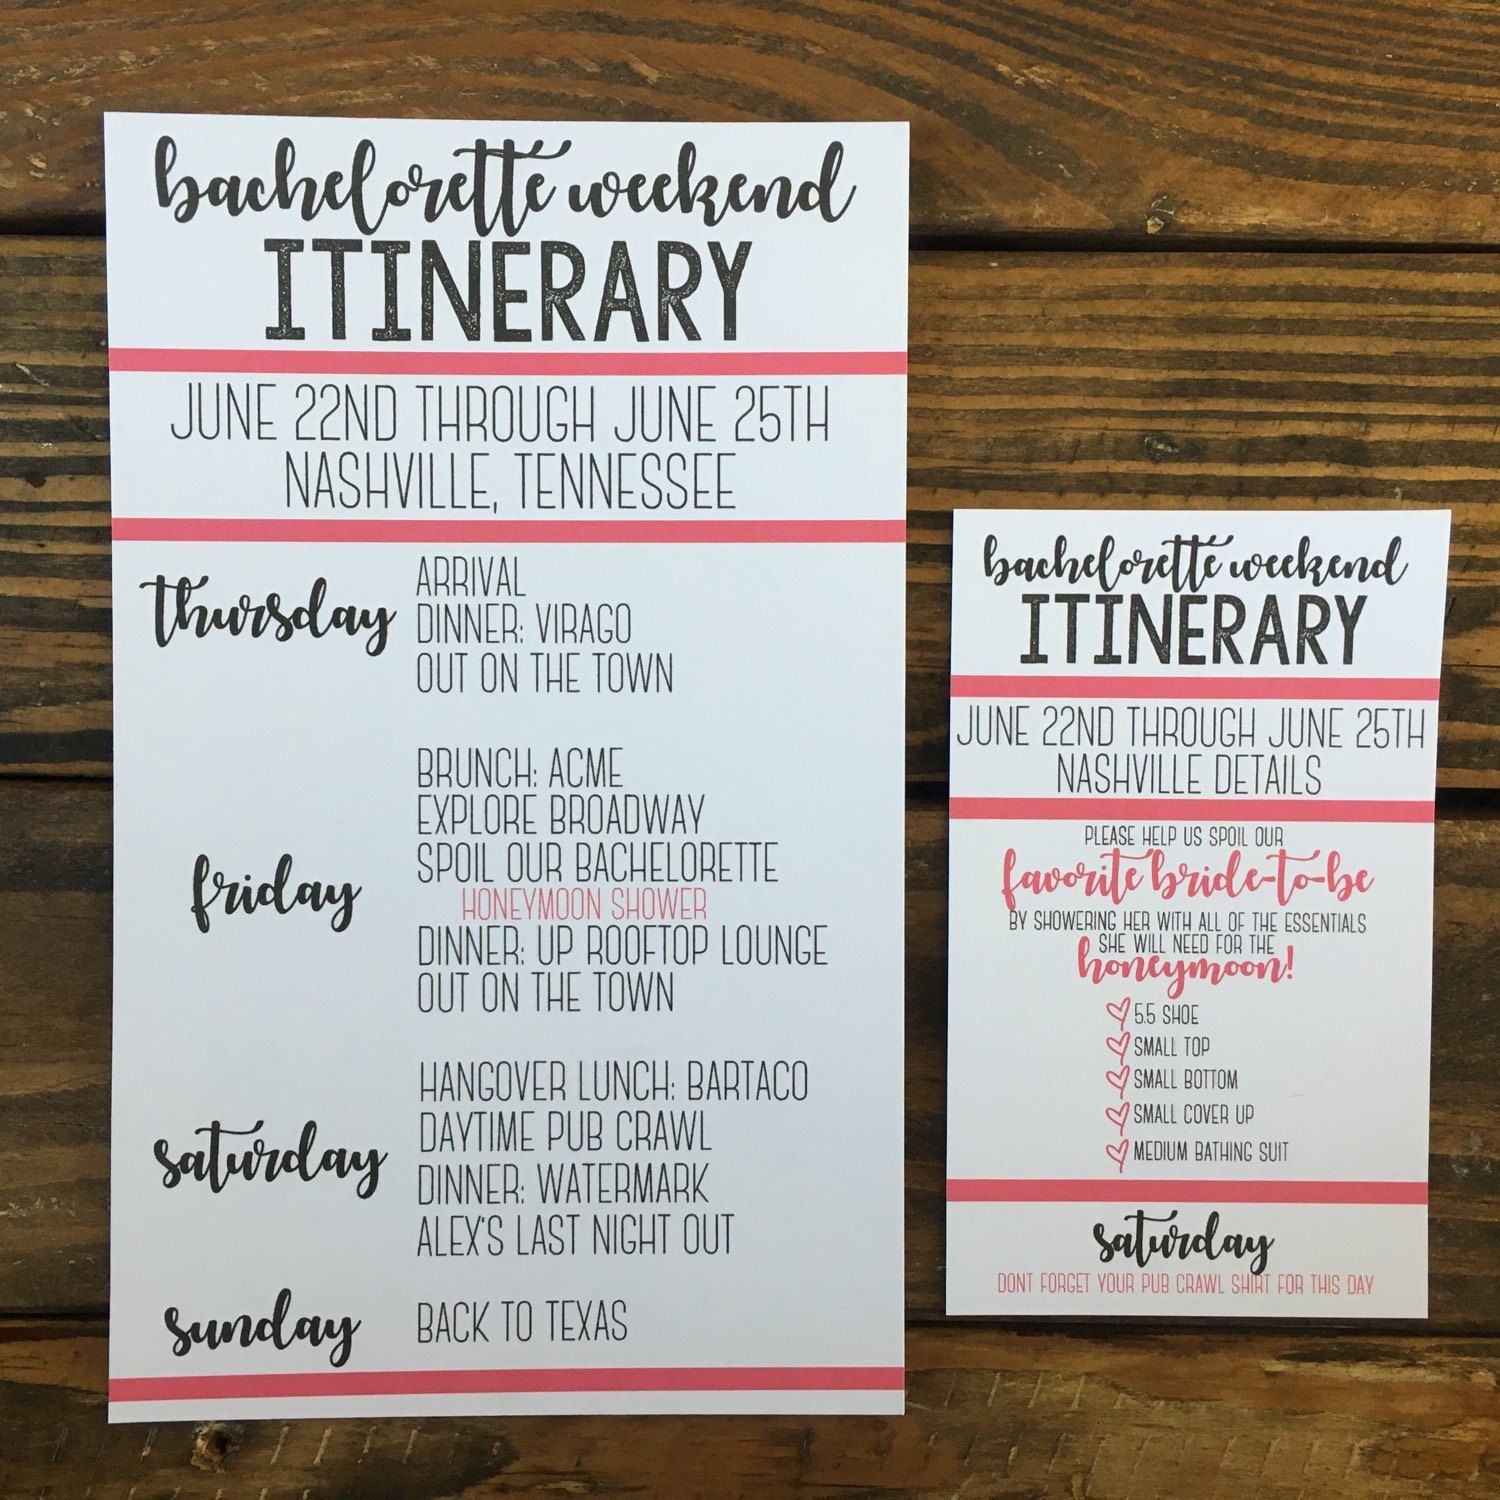 bachelorette weekend
ITINERARY
JUNE 22ND THROUGH JUNE 25TH
NASHVILLE, TENNESSEE
thursday
ARRIVAL
DINNER: VIRAGO
OUT ON THE TOWN
friday
BRUNCH: ACME
EXPLORE BROADWAY
SPOIL OUR BACHELORETTE
HONEYMOON SHOWER
DINNER: UP ROOFTOP LOUNGE
OUT ON THE TOWN
saturday
HANGOVER LUNCH: BARTACO
DAYTIME PUB CRAWL
DINNER: WATERMARK
ALEX'S LAST NIGHT OUT
sunday
BACK TO TEXAS
bachelorette weekend
ITINERARY
JUNE 22ND THROUGH JUNE 25TH
NASHVILLE DETAILS
PLEASE HELP US SPOIL OUR
favorite bride-to-be
BY SHOWERING HER WITH ALL OF THE ESSENTIALS
SHE WILL NEED FOR THE
honeymoon!
5.5 SHOE
SMALL TOP
SMALL BOTTOM
SMALL COVER UP
MEDIUM BATHING SUIT
saturday
DONT FORGET YOUR PUB CRAWL SHIRT FOR THIS DAY